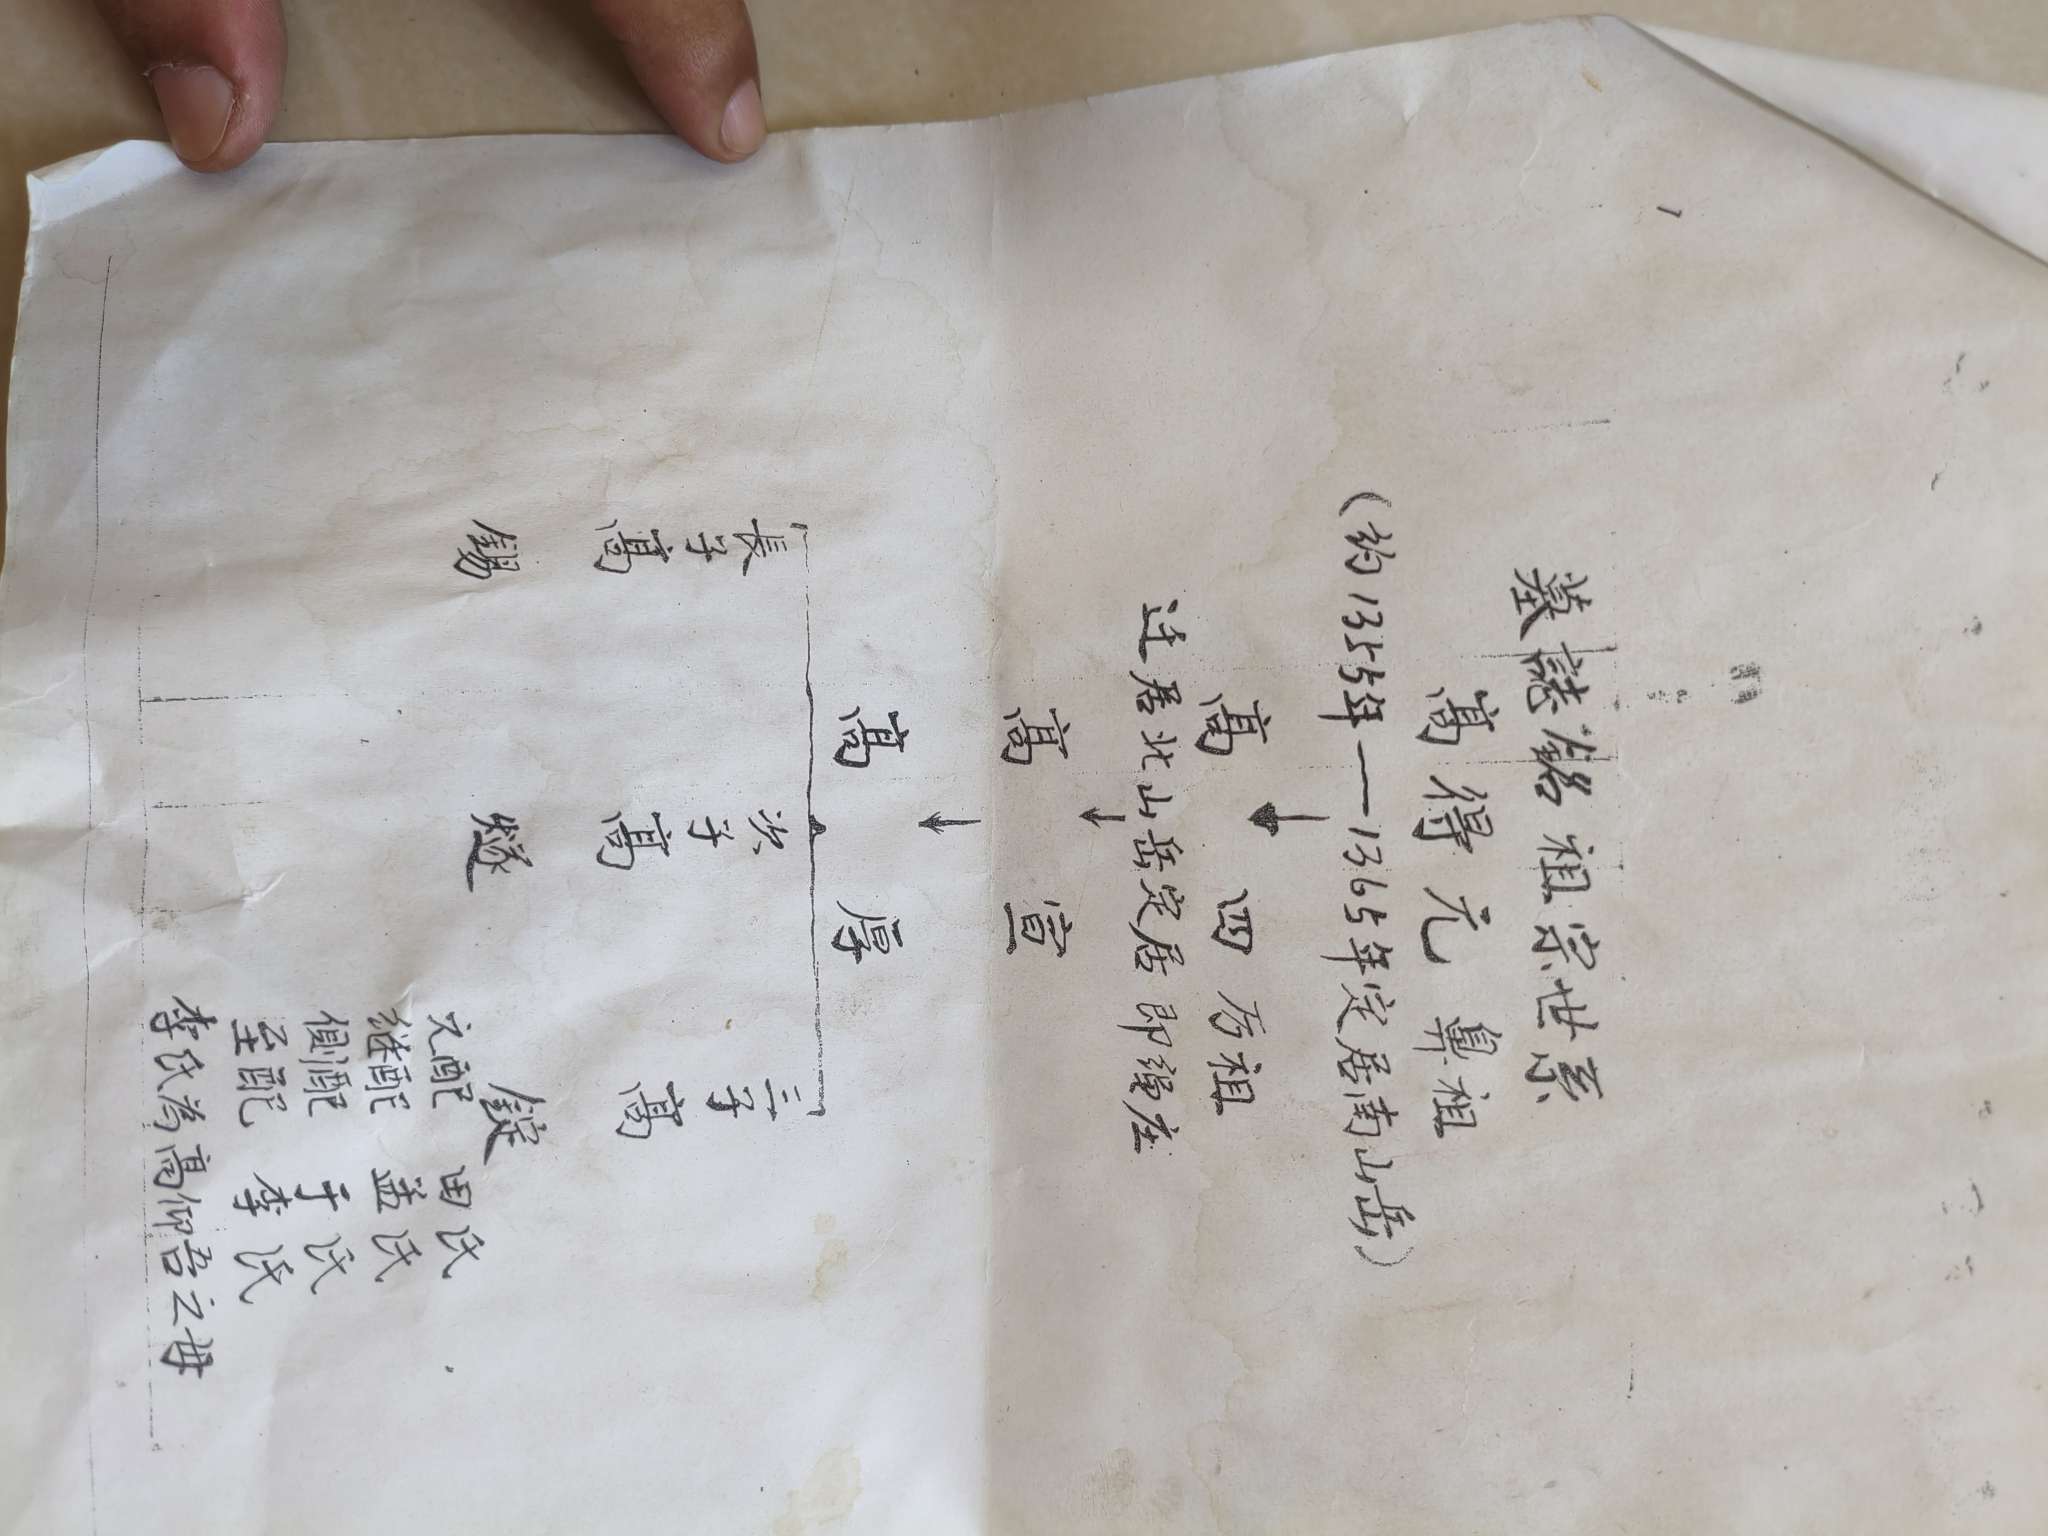 墓誌銘祖宗世系
高得元 鼻祖
(约1355年——1365年定居南山岳)
高 四 房祖
迁居北山岳定居即缐庄
高 宣
高 厚
長子高 錫
次子高 鐩
三子高 錠
元配 田氏
继配 盖氏
側配 于氏
至配 李氏
李氏為高仰吾之母